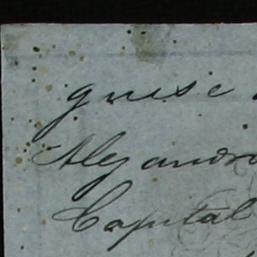 guise
Alejandro
Capital